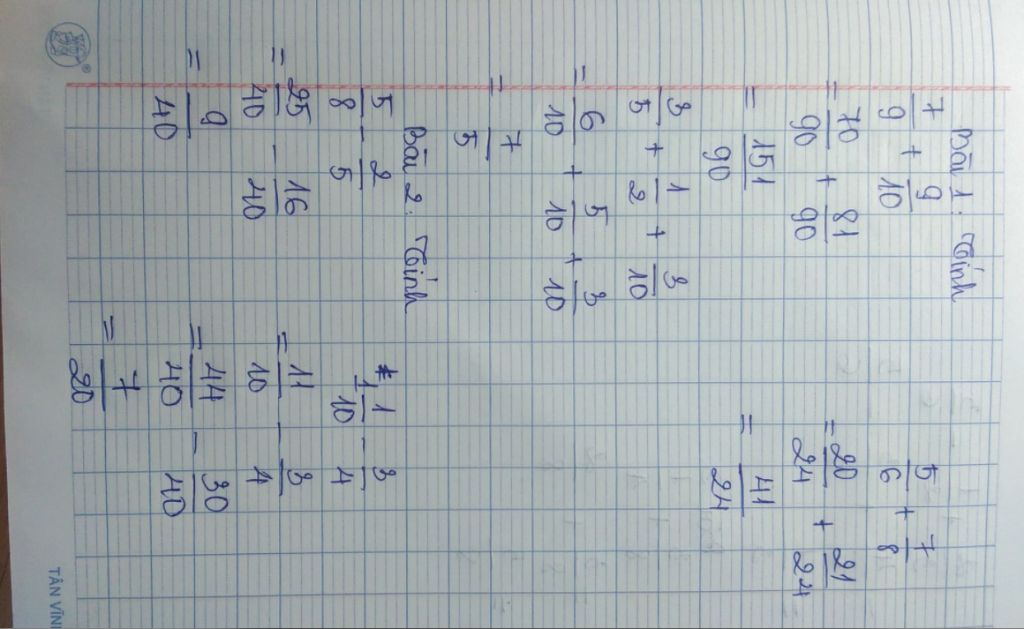 Bài 1: Tính
7/9 + 9/10
= 70/90 + 81/90
= 151/90
5/6 + 7/8
= 20/24 + 21/24
= 41/24
3/5 + 1/2 + 3/10
= 6/10 + 5/10 + 3/10
= 7/5
Bài 2: Tính
5/8 - 2/5
= 25/40 - 16/40
= 9/40
1 1/10 - 3/4
= 11/10 - 3/4
= 44/40 - 30/40
= 7/20